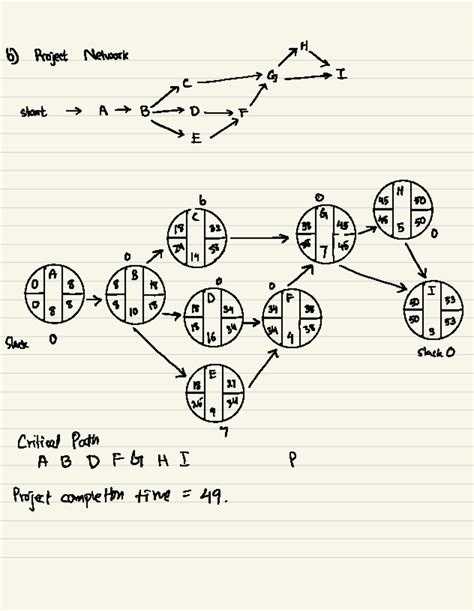 b) Project Network
H
C G I
start → A → B D F
E
b 0 H
C G 45 50
18 32 38 45 45 50
38 38 45 5 0
0 14 7
A B 0 0
0 8 8 18 D F I
0 8 8 18 18 34 34 38 50 53
8 10 18 34 34 38 50 53
Slack 0 16 4 3
E slack 0
18 27
34
9
7
Critical Path
A B D F G H I P
Project completion time = 49.